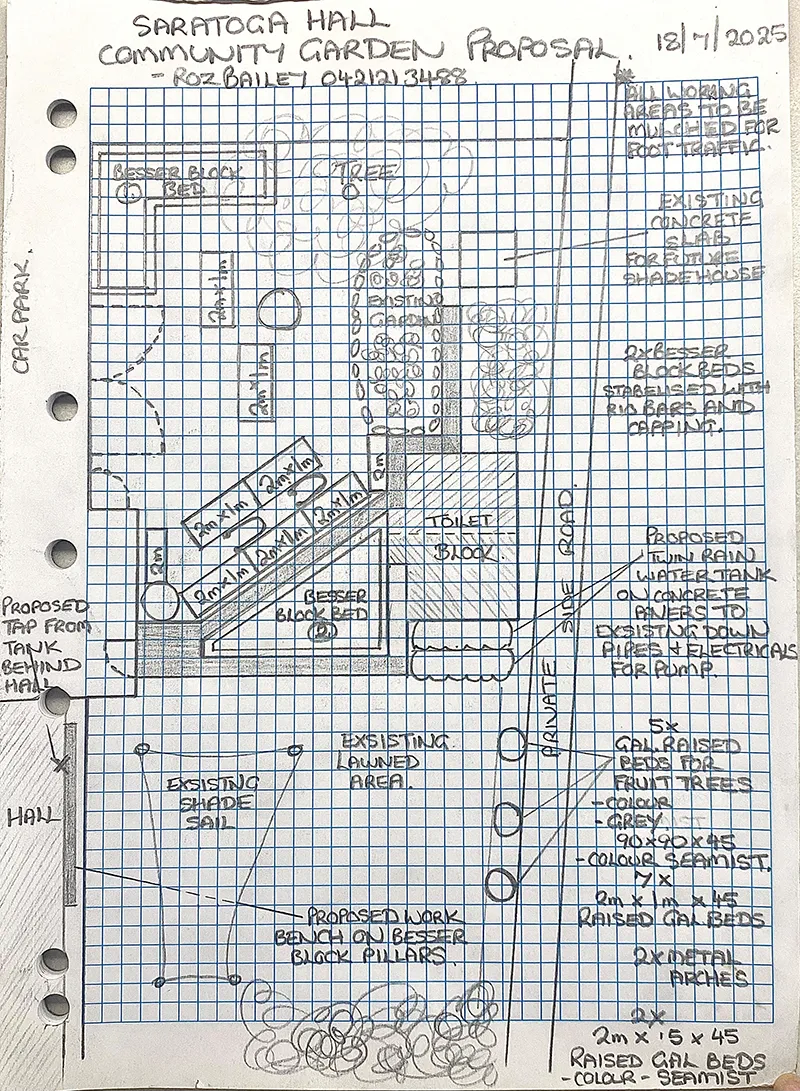 SARATOGA HALL
COMMUNITY GARDEN PROPOSAL. 18/7/2025
- ROZ BAILEY 0421213488
* ALL WORKING
AREAS TO BE
MULCHED FOR
FOOT TRAFFIC.
BESSER BLOCK
BED
TREE
EXISTING
CONCRETE
SLAB
FOR FUTURE
SHADEHOUSE
CARPARK.
2m x 1m
EXISTING
GARDEN
2m x 1m
2x BESSER
BLOCK BEDS
STABELISED WITH
RIO BARS AND
CAPPING.
2m x 1m
2m x 1m
2m
2m x 1m
2m x 1m
2m x 1m
2m
TOILET
BLOCK.
BESSER
BLOCK BED
PRIVATE SIDE ROAD.
PROPOSED
TWIN RAIN
WATER TANK
ON CONCRETE
PIPES + ELECTRICALS
FOR PUMP.
PROPOSED
TAP FROM
TANK
BEHIND
HALL
HALL
EXSISTING
LAWNED
AREA.
EXSISTNG
SHADE
SAIL
5x
GAL. RAISED
BEDS FOR
FRUIT TREES
- COLOUR
- GREY
90x90x45
- COLOUR SEAMIST.
7x
2m x 1m x 45
RAISED GAL BEDS
PROPOSED WORK
BENCH ON BESSER
BLOCK PILLARS.
2x METAL
ARCHES
2x
2m x .5 x 45
RAISED GAL BEDS
- COLOUR - SEAMIST